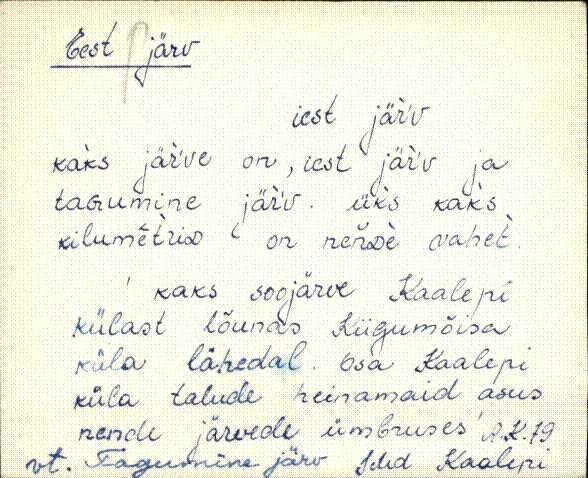 Eest järv
iest jär̀v
kak̀s jär̀ve on, iest jär̀v ja
taGumine jär̀v. ük̀s kak̀s
kilumēt̀riD on neńDè vahet̀.
' kaks soojärve Kaalepi
külast lõunas Kiigumõisa
küla lähedal. Osa Kaalepi
küla talude heinamaid asus
nende järvede ümbruses' A.K.79
vt. Tagumine järv JMd Kaalepi